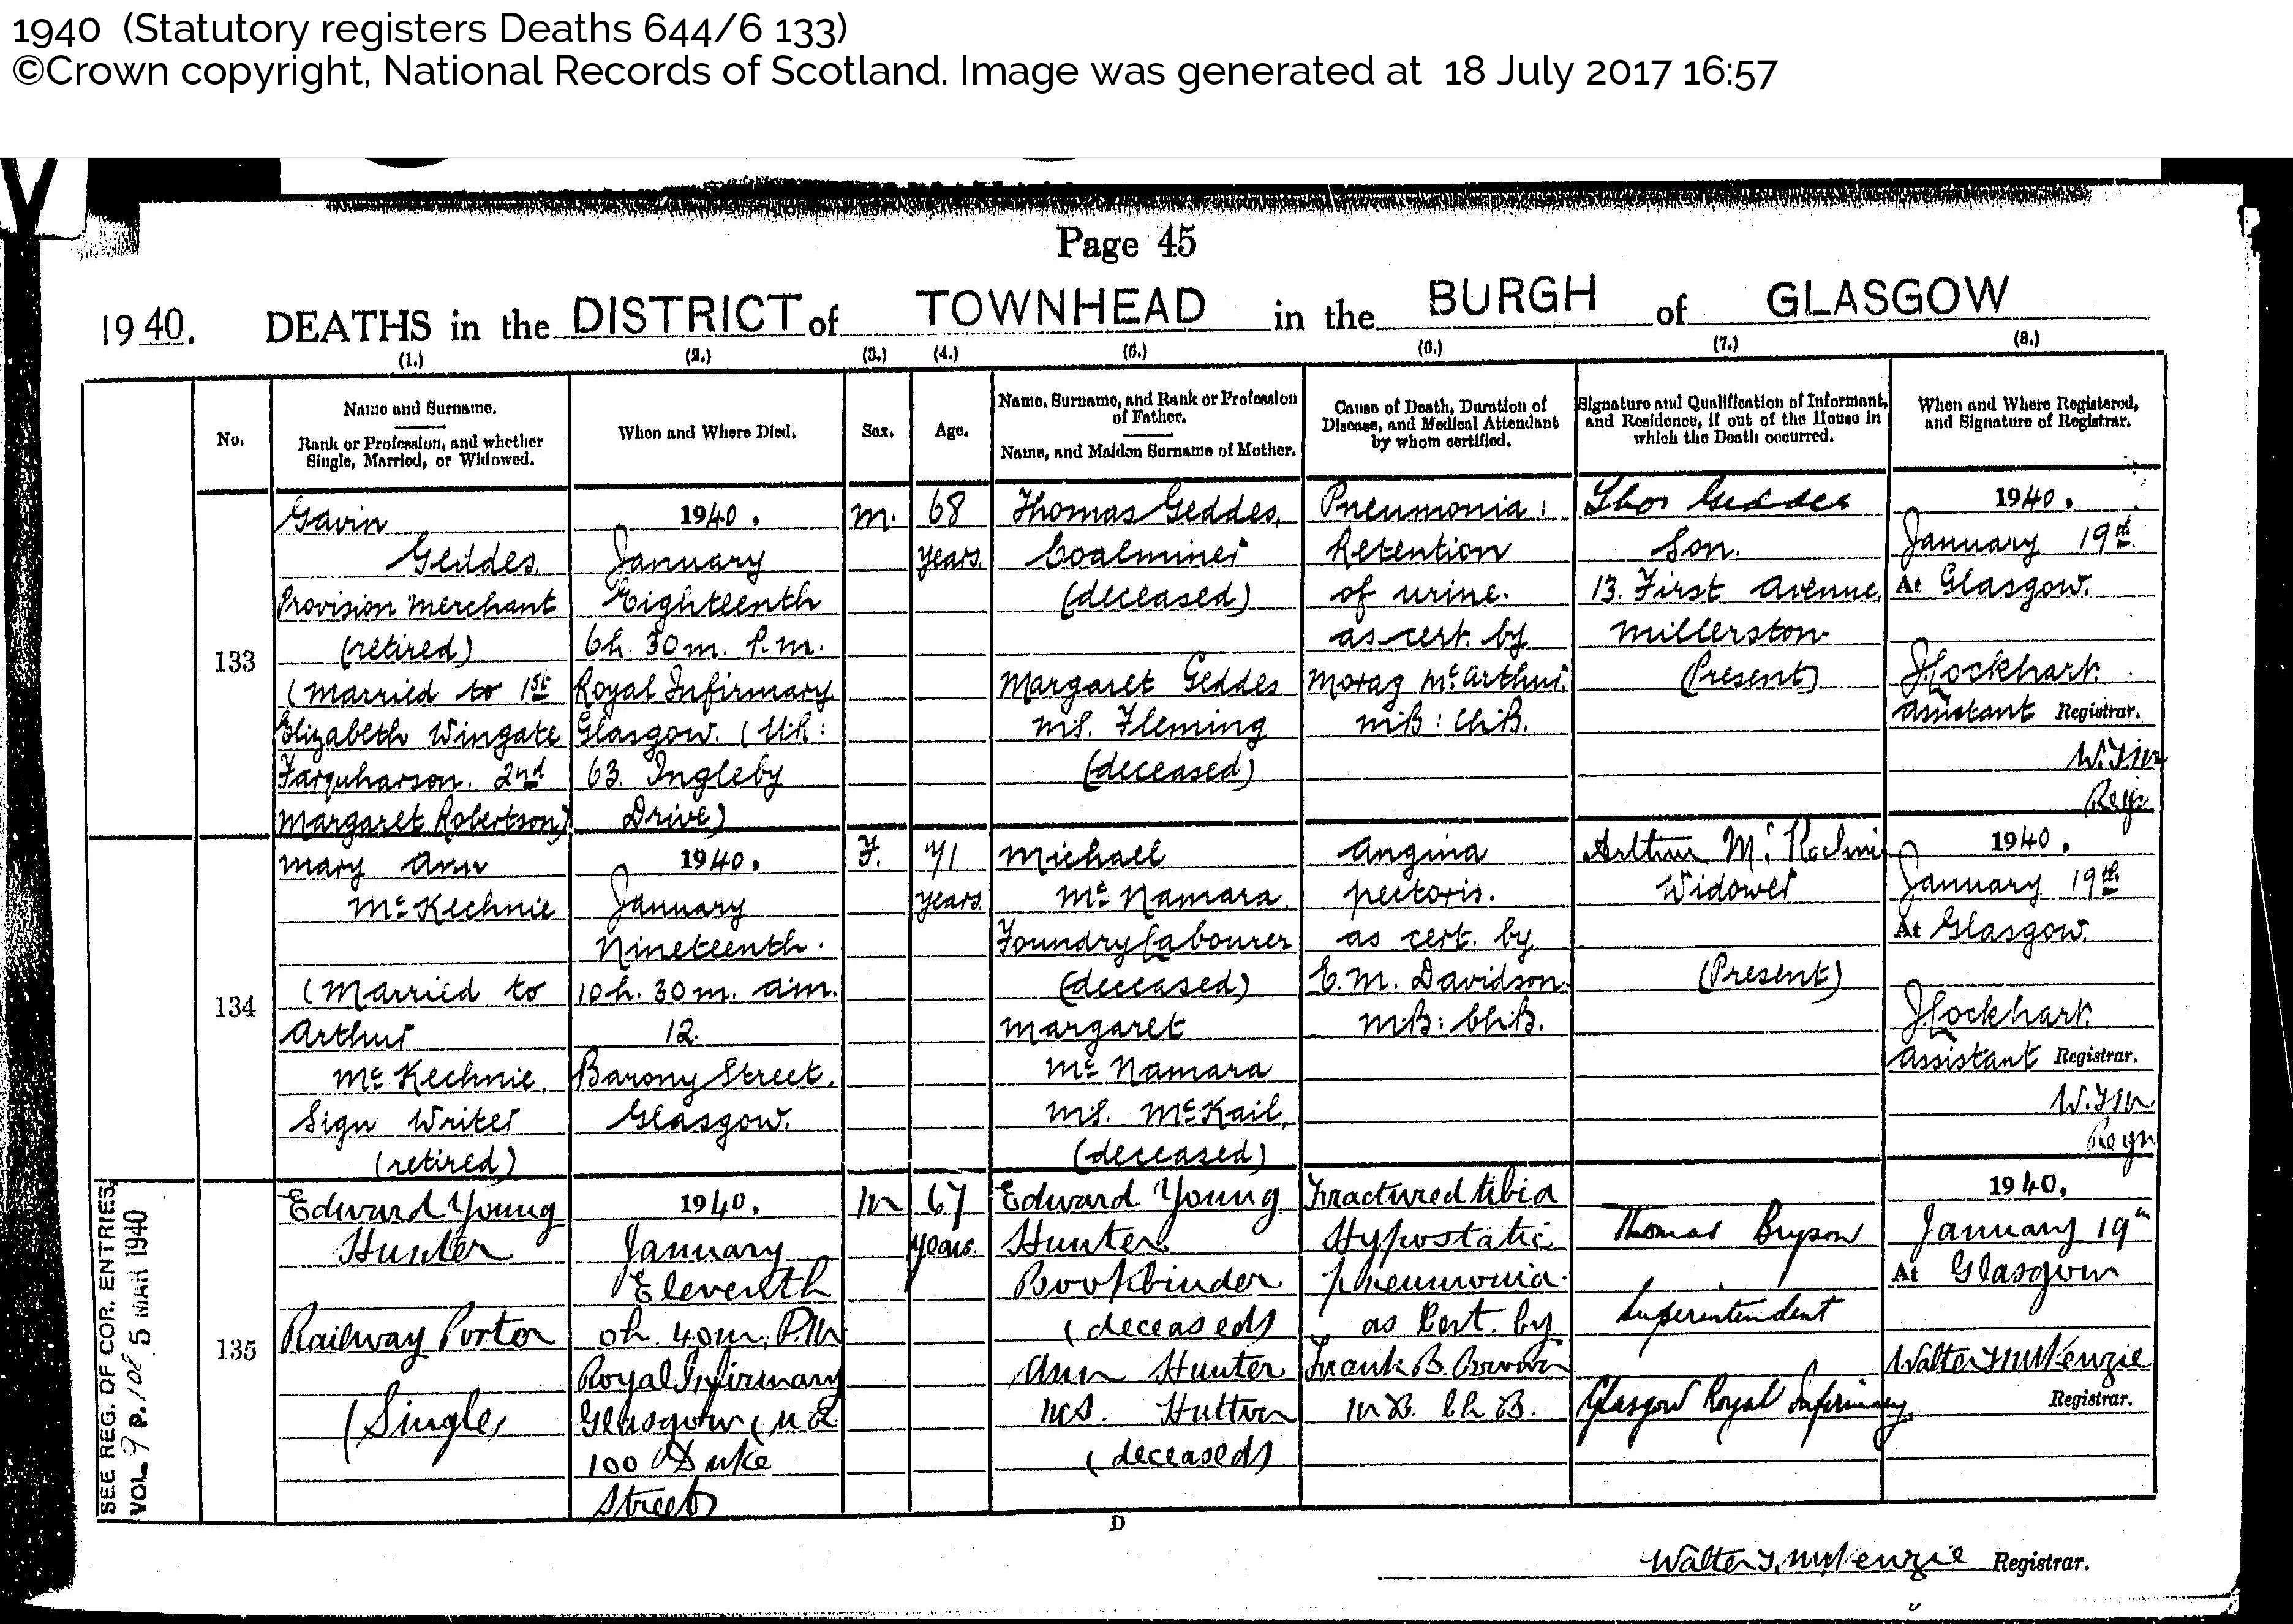 1940 (Statutory registers Deaths 644/6 133)
©Crown copyright, National Records of Scotland. Image was generated at 18 July 2017 16:57
Page 45
1940. DEATHS in the DISTRICT of TOWNHEAD in the BURGH of GLASGOW
(1.) (2.) (3.) (4.) (5.) (6.) (7.) (8.)
No.
Name and Surname.
Rank or Profession, and whether
Single, Married, or Widowed.
When and Where Died.
Sex.
Age.
Name, Surname, and Rank or Profession
of Father.
Name, and Maiden Surname of Mother.
Cause of Death, Duration of
Disease, and Medical Attendant
by whom certified.
Signature and Qualification of Informant,
and Residence, if out of the House in
which the Death occurred.
When and Where Registered,
and Signature of Registrar.
133
Gavin
Geddes
Provision Merchant
(retired)
(Married to 1st
Elizabeth Wingate
Farquharson. 2nd
Margaret Robertson)
1940.
January
Eighteenth
6h. 30m. P.M.
Royal Infirmary
Glasgow. (U.R:
63. Ingleby
Drive)
M.
68
years.
Thomas Geddes,
Coalminer
(deceased)
Margaret Geddes
M.S. Fleming
(deceased)
Pneumonia:
Retention
of urine.
as cert. by
Morag McArthur.
M.B: Ch.B.
Thos Geddes
Son.
13. First Avenue,
Millerston.
(Present)
1940.
January 19th.
At Glasgow.
J Lockhart.
Assistant Registrar.
W.T.M
Regr.
134
Mary Ann
McKechnie
(Married to
Arthur
McKechnie,
Sign Writer
(retired)
1940.
January
Nineteenth.
10h. 30m. a.m.
12.
Barony Street.
Glasgow.
F.
71
years.
Michael
McNamara,
Foundry Labourer
(deceased)
Margaret
McNamara
M.S. McKail,
(deceased)
Angina
pectoris.
as cert. by
E.M. Davidson.
M.B: Ch.B.
Arthur McKechnie
Widower
(Present)
1940.
January 19th
At Glasgow.
J Lockhart.
Assistant Registrar.
W.T.M.
Regr
SEE REG. OF COR. ENTRIES
VOL 9 P. 108 5 MAR 1940
135
Edward Young
Hunter
Railway Porter
(Single)
1940.
January
Eleventh
0h. 40m. P.M
Royal Infirmary
Glasgow (U R
100 Duke
Street)
M
67
years.
Edward Young
Hunter
Bookbinder
(deceased)
Ann Hunter
M.S. Hutton
(deceased)
Fractured tibia
Hypostatic
pneumonia.
as Cert. by
Frank B. Brown
M B. Ch B.
Thomas Bryson
Superintendent
Glasgow Royal Infirmary.
1940.
January 19th
At Glasgow
Walter T McKenzie
Registrar.
D
Walter T. McKenzie Registrar.